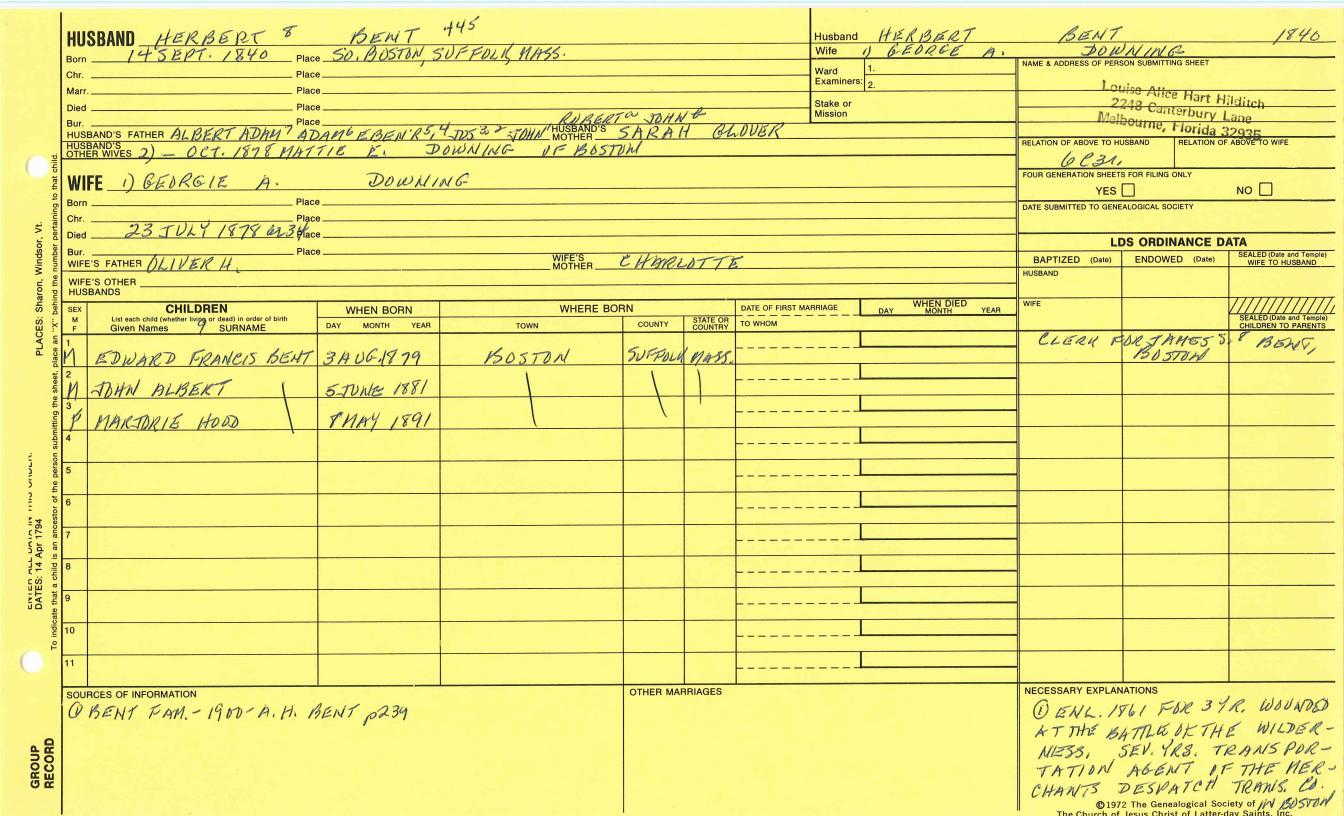 HUSBAND HERBERT 8 BENT 445
Born 14 SEPT. 1840 Place SO. BOSTON, SUFFOLK, MASS.
Chr. Place
Marr. Place
Died Place
Bur. Place
ROBERT JOHN
HUSBAND'S FATHER ALBERT ADAM 7 ADAM 6 EBEN'R 5, 4 JOS 3, 2 JOHN 1 HUSBAND'S MOTHER SARAH GLOVER
HUSBAND'S OTHER WIVES 2) - OCT. 1878 MATTIE E. DOWNING OF BOSTON
Husband HERBERT BENT 1840
Wife 1) GEORGE A. DOWNING
Ward Examiners: 1.
2.
Stake or Mission
NAME & ADDRESS OF PERSON SUBMITTING SHEET
Louise Alice Hart Hilditch
2248 Canterbury Lane
Melbourne, Florida 32935
RELATION OF ABOVE TO HUSBAND RELATION OF ABOVE TO WIFE
6C3r.
FOUR GENERATION SHEETS FOR FILING ONLY
YES NO
DATE SUBMITTED TO GENEALOGICAL SOCIETY
WIFE 1) GEORGIE A. DOWNING
Born Place
Chr. Place
Died 23 JULY 1878 Place
Bur. Place
WIFE'S FATHER OLIVER H. WIFE'S MOTHER CHARLOTTE
WIFE'S OTHER HUSBANDS
LDS ORDINANCE DATA
BAPTIZED (Date) ENDOWED (Date) SEALED (Date and Temple) WIFE TO HUSBAND
HUSBAND
WIFE
SEALED (Date and Temple) CHILDREN TO PARENTS
SEX M F
CHILDREN
List each child (whether living or dead) in order of birth
Given Names 9 SURNAME
WHEN BORN
DAY MONTH YEAR
WHERE BORN
TOWN COUNTY STATE OR COUNTRY
DATE OF FIRST MARRIAGE
TO WHOM
WHEN DIED
DAY MONTH YEAR
1 M EDWARD FRANCIS BENT 3 AUG. 1879 BOSTON SUFFOLK MASS.
CLERK FOR JAMES S. 8 BENT,
BOSTON
2 M JOHN ALBERT 5 JUNE 1881
3 F MARJORIE HOOD MAY 1891
4
5
6
7
8
9
10
11
SOURCES OF INFORMATION
① BENT FAM. - 1900 - A. H. BENT p239
OTHER MARRIAGES
NECESSARY EXPLANATIONS
① ENL. 1861 FOR 3 YR. WOUNDED
AT THE BATTLE OF THE WILDER-
NESS, SEV. YRS. TRANSPOR-
TATION AGENT OF THE MER-
CHANTS DESPATCH TRANS. CO.
IN BOSTON
©1972 The Genealogical Society of
The Church of Jesus Christ of Latter-day Saints, Inc.
PLACES: Sharon, Windsor, Vt.
ENTER ALL DATA IN THIS ORDER:
DATES: 14 Apr 1794
To indicate that a child is an ancestor of the person submitting the sheet, place an "X" behind the number pertaining to that child.
GROUP RECORD